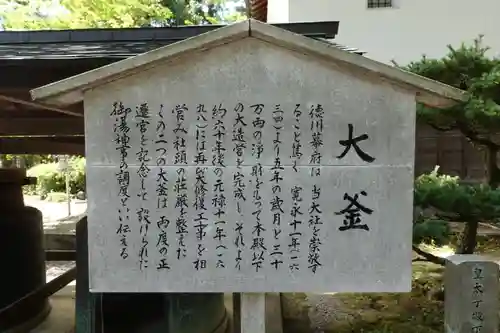 大釜
徳川幕府は 当大社を崇敬す
ること篤く 寛永十一年(一六
三四)より五年の歳月と三十
万両の浄財を以って本殿以下
の大造営を完成し それより
約六十年後の元禄十一年(一六
九八)には再び大修復工事を相
営み社頭の荘厳を整えた
この二つの大釜は 二度の正
遷宮を記念して設けられた
御湯神事の調度といい伝える